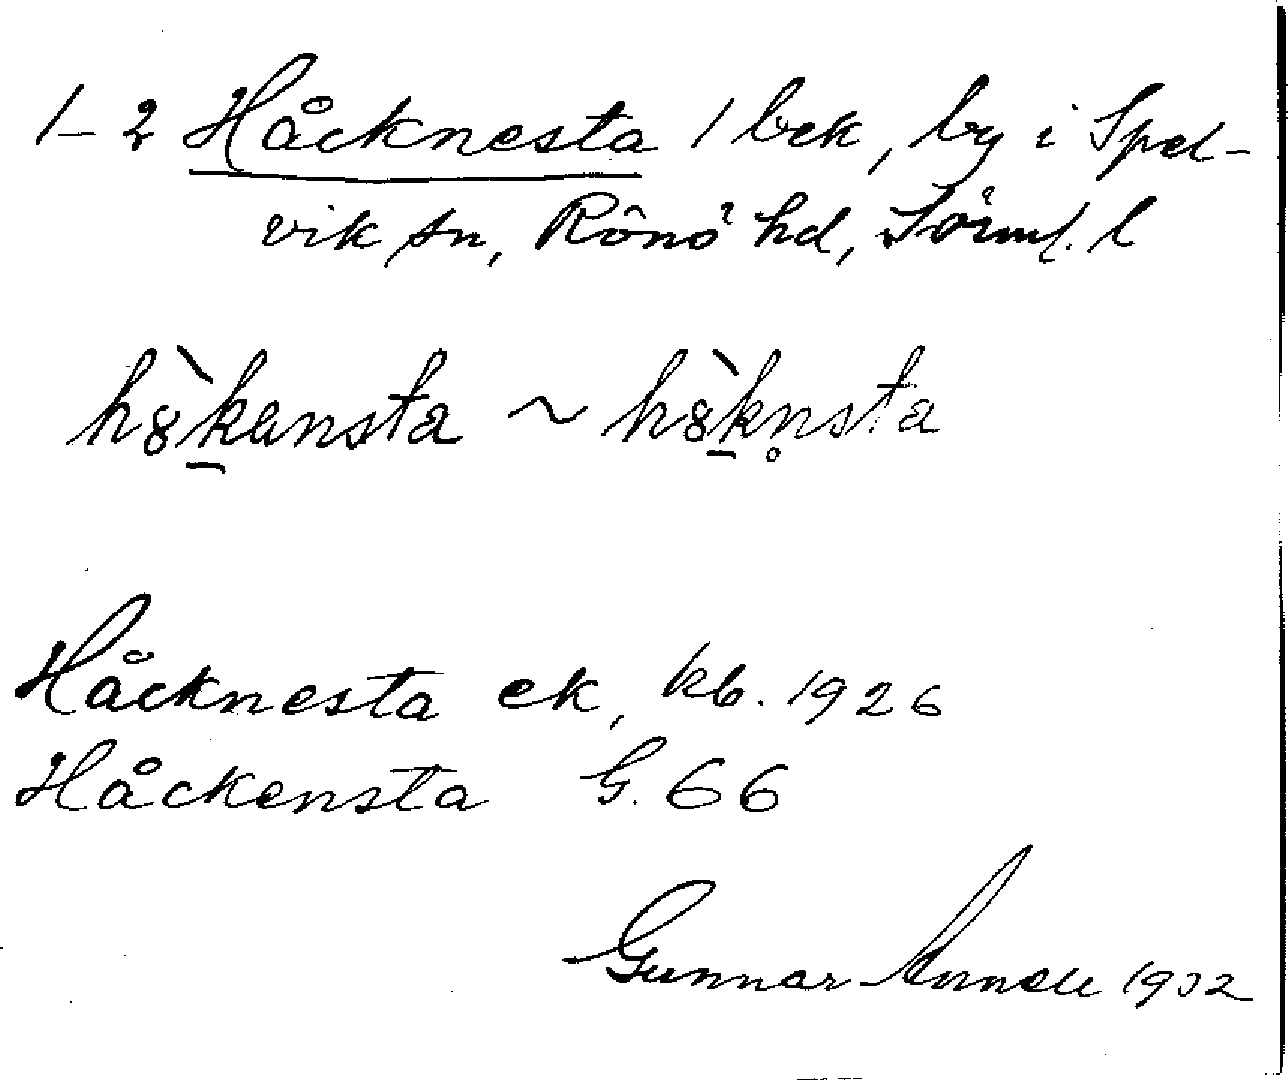 1-2 Håcknesta / bek, by i Spel-
vik sn, Rönö hd, Sörml. l
hȣ̀k̠ansta ~ hȣ̀k̠n̥sta
Håcknesta ek, kb. 1926
Håckensta G. 66
Gunnar 1932